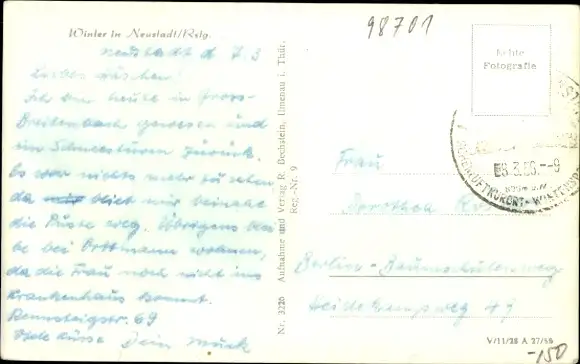 98701
Winter in Neustadt/Rstg.
Neustadt d 7.3
Liebes
Ich bin heute in Gross-
Breitenbach gewesen und
im Schneesturm zurück.
Es war nichts mehr zu sehen
da blieb mir beinahe
die Puste weg. Übrigens blei
be bei Ortmann wohnen,
da die Frau noch nicht ins
Krankenhaus kommt.
Rennsteigstr. 69
Viele Küsse Dein
Nr. 3220 Aufnahme und Verlag R. Bechstein, Ilmenau i. Thür.
Reg.-Nr. 9
Echte
Fotografie
8.3.56.-9
HÖHENLUFTKURORT - WINTERSP
Frau
Dorothea
Berlin - Baumschulenweg
Heidekampweg 47
V/11/28 A 27/55
-150